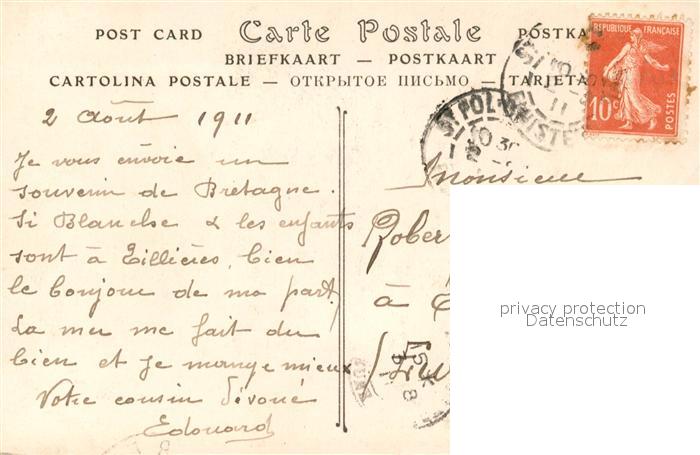 POST CARD Carte Postale POSTKA
BRIEFKAART — POSTKAART
CARTOLINA POSTALE — ОТКРЫТОЕ ПИСЬМО — TARJETA
REPUBLIQUE FRANÇAISE
10c
POSTES
ST POL
2 Août 1911
Je vous envoie un
souvenir de Bretagne.
Si Blanche & les enfants
sont à Tillières, bien
le bonjour de ma part,
La mer me fait du
bien et je mange mieux
Votre cousin dévoué
Edouard
Monsieur
Rober
à
privacy protection
Datenschutz